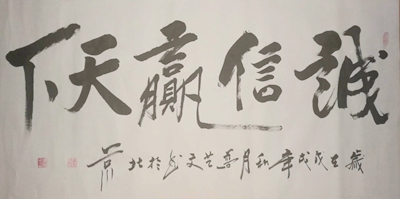 誠信贏天下
歲在戊戌年秋月文书於北京